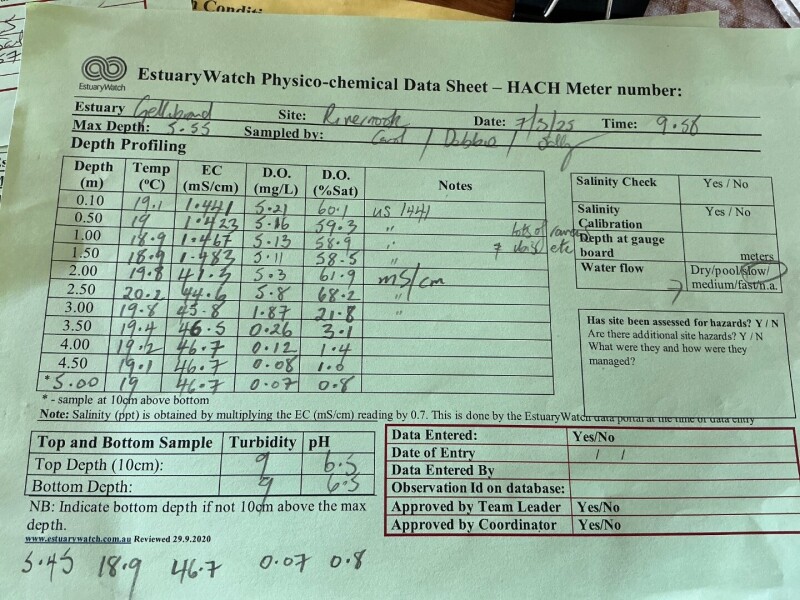 Conditi
EstuaryWatch
EstuaryWatch Physico-chemical Data Sheet – HACH Meter number:
Estuary Gellibrand Site: Rivernook Date: 7/3/25 Time: 9.58
Max Depth: 5.55 Sampled by: Carol / Debbie / Sally
Depth Profiling
Depth (m) Temp (°C) EC (mS/cm) D.O. (mg/L) D.O. (%Sat) Notes
0.10 19.1 1.441 5.21 60.1 us 1441
0.50 19 1.423 5.16 59.3 "
1.00 18.9 1.467 5.13 58.9 " lots of
1.50 18.9 1.483 5.11 58.5 7 etc
2.00 19.8 41.3 5.3 61.9 mS/cm
2.50 20.2 44.6 5.8 68.2 "
3.00 19.8 45.8 1.87 21.8 "
3.50 19.4 46.5 0.26 3.1
4.00 19.2 46.7 0.12 1.4
4.50 19.1 46.7 0.08 1.0
*5.00 19 46.7 0.07 0.8
Salinity Check Yes / No
Salinity Calibration Yes / No
Depth at gauge board meters
Water flow Dry/pool/slow/
medium/fast/n.a.
Has site been assessed for hazards? Y / N
Are there additional site hazards? Y / N
What were they and how were they
managed?
* - sample at 10cm above bottom
Note: Salinity (ppt) is obtained by multiplying the EC (mS/cm) reading by 0.7. This is done by the EstuaryWatch data portal at the time of data entry
Top and Bottom Sample Turbidity pH
Top Depth (10cm): 9 6.5
Bottom Depth: 9 6.5
NB: Indicate bottom depth if not 10cm above the max
depth.
www.estuarywatch.com.au Reviewed 29.9.2020
Data Entered: Yes/No
Date of Entry / /
Data Entered By
Observation Id on database:
Approved by Team Leader Yes/No
Approved by Coordinator Yes/No
5.45 18.9 46.7 0.07 0.8